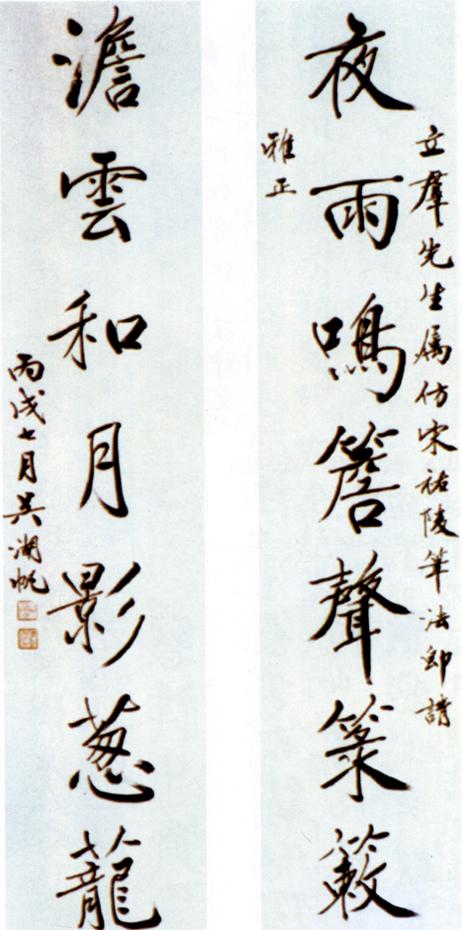 立羣先生属仿宋祐陵筆法即請
夜雨鳴簷聲簌
雅正
澹雲和月影葱蘢
丙戌七月吳湖帆